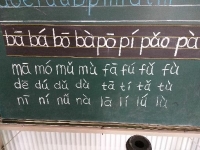 bā bá bō bà pō pí pǎo pà
mā mó mǔ mù fā fú fǔ fù
dé dú dǔ dù tā tí tǎ tù
nī ní nǔ nà lā lí lǔ lù